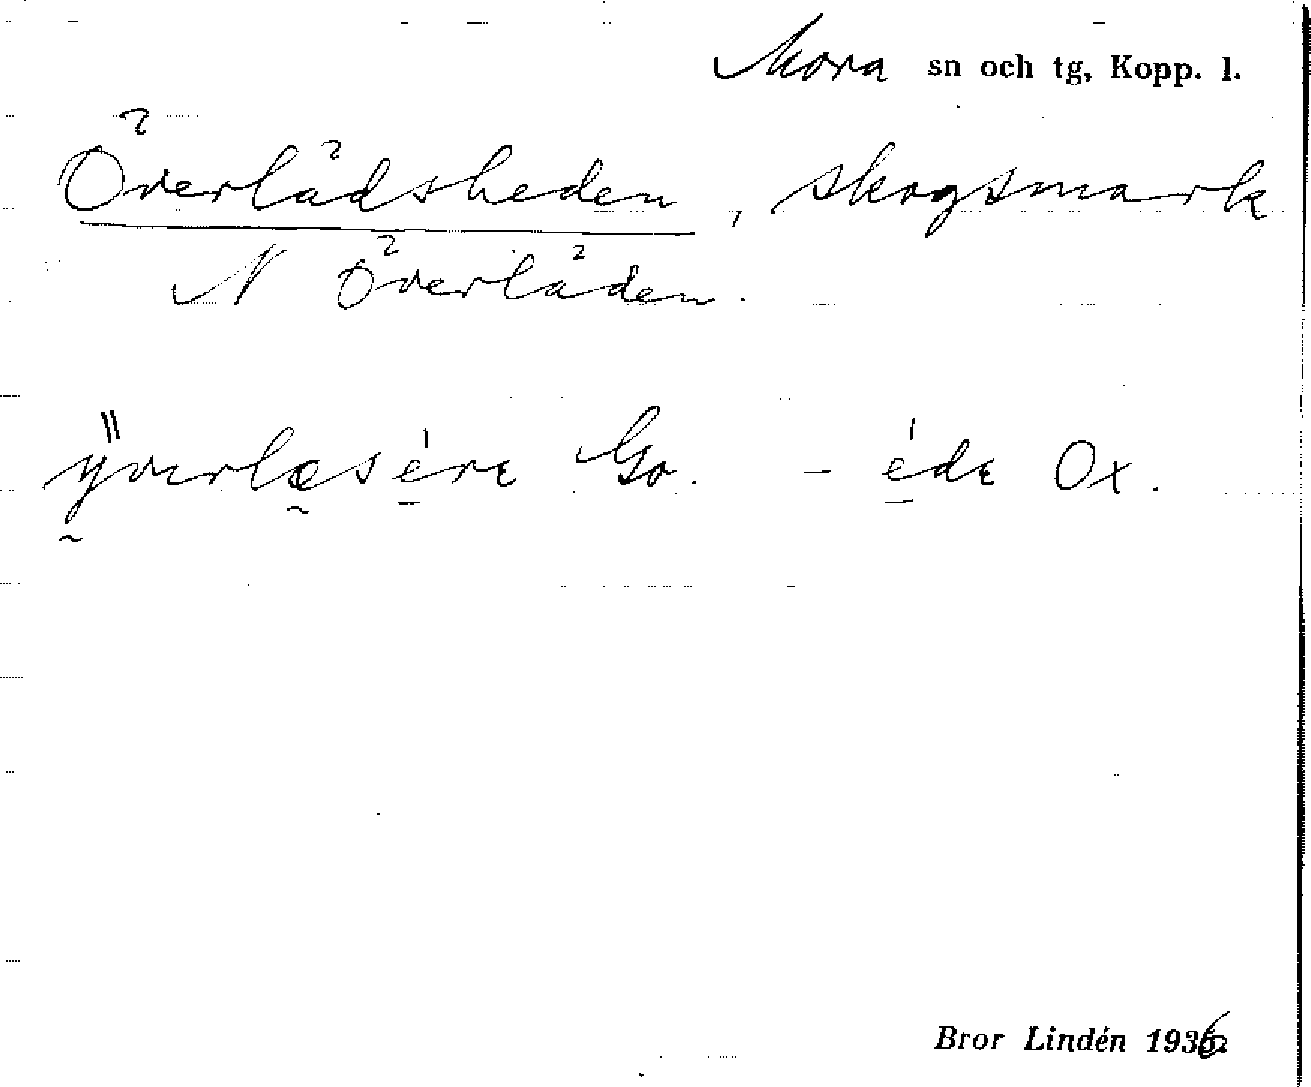 Mora sn och tg, Kopp. l.
Överlådsheden, skogsmark
N Överlåden.
ÿverlæsére Go. - éde Ox.
Bror Lindén 1936